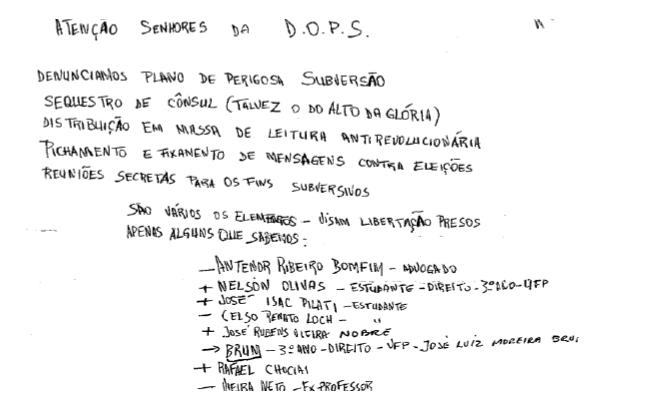 ATENÇÃO SENHORES DA D.O.P.S.
DENUNCIAMOS PLANO DE PERIGOSA SUBVERSÃO
SEQUESTRO DE CÔNSUL (TALVEZ O DO ALTO DA GLÓRIA)
DISTRIBUIÇÃO EM MASSA DE LEITURA ANTIREVOLUCIONÁRIA
PICHAMENTO E FIXAMENTO DE MENSAGENS CONTRA ELEIÇÕES
REUNIÕES SECRETAS PARA OS FINS SUBVERSIVOS
SÃO VÁRIOS OS ELEMENTOS - VISAM LIBERTAÇÃO PRESOS
APENAS ALGUNS QUE SABEMOS:
- ANTENOR RIBEIRO BOMFIM - ADVOGADO
+ NELSON OLIVAS - ESTUDANTE - DIREITO - 3º ANO - UFP
+ JOSÉ ISAC PILATI - ESTUDANTE
- CELSO RENATO LOCH - "
+ JOSÉ RUBENS VIEIRA NOBRE
→ BRUM - 3º ANO - DIREITO - UFP - JOSÉ LUIZ MOREIRA
+ RAFAEL
- VIEIRA NETO - EX PROFESSOR